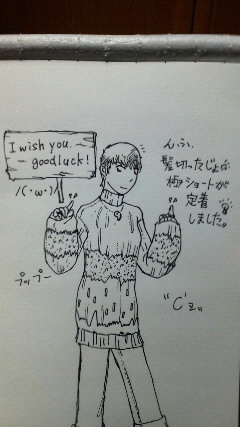 I wish you
good luck!
(・ω・)
んふ、
髪切ったじょ
極ショートが
定着
しました。
プップー